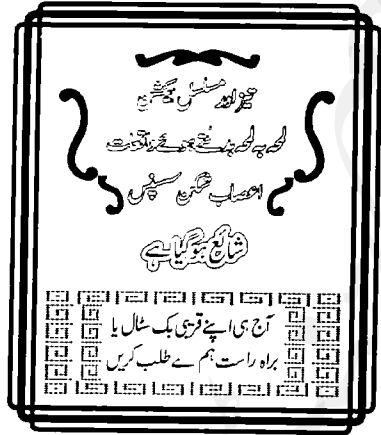 تیز اور مسلسل ایکشن
لمحہ بہ لمحہ بدلتے ہوئے واقعات
اعصاب شکن سسپنس
شائع ہو گیا ہے
آج ہی اپنے قریبی بک سٹال یا
براہ راست ہم سے طلب کریں